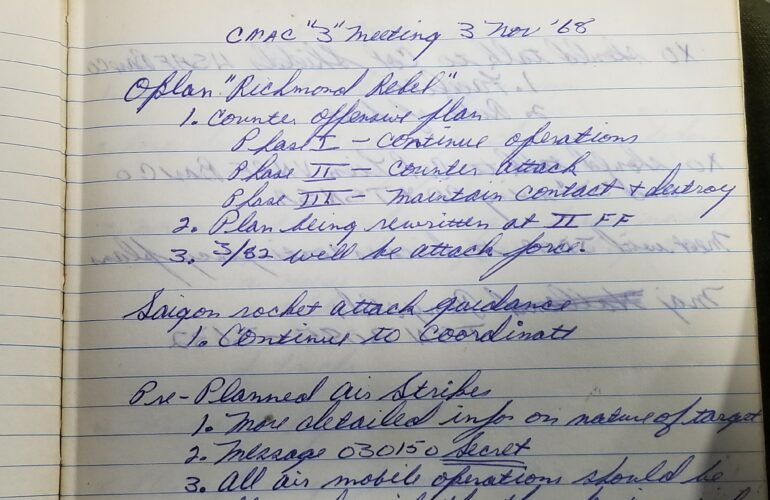 CMAC "3" Meeting 3 Nov '68
Oplan "Richmond Rebel"
1. Counter offensive plan
Phase I - Continue operations
Phase II - Counter attack
Phase III - Maintain contact + destroy
2. Plan being rewritten at II FF
3. 3/82 will be attack force.
Saigon rocket attack guidance
1. Continue to coordinate
Pre-Planned Air Strikes
1. More detailed info on nature of target
2. Message 030150 Secret
3. All air mobile operations should be